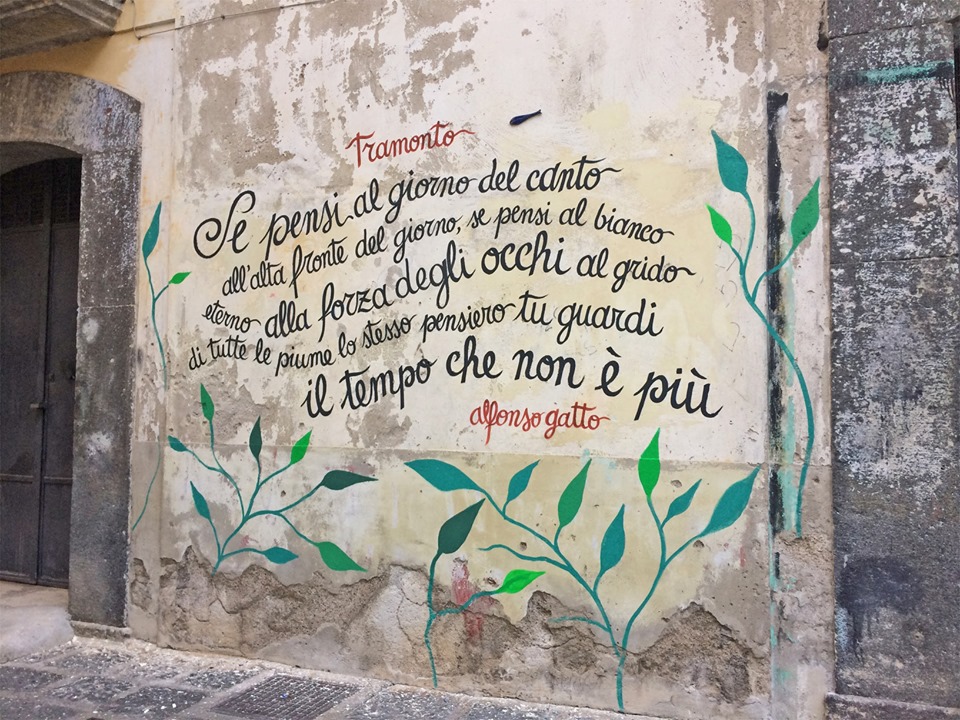 Tramonto
Se pensi al giorno del canto
all'alta fronte del giorno, se pensi al bianco
eterno alla forza degli occhi al grido
di tutte le piume lo stesso pensiero tu guardi
il tempo che non è più
alfonso gatto